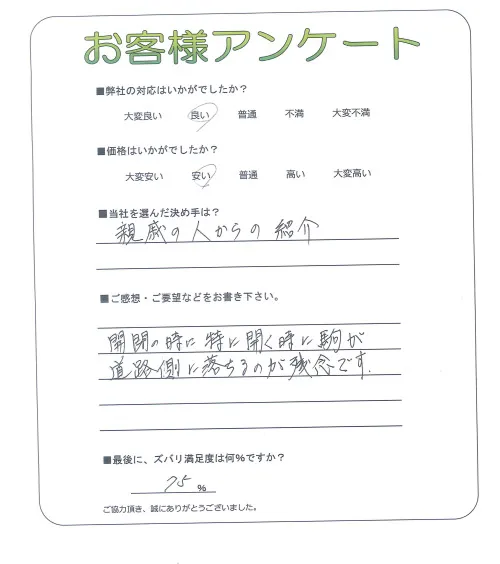 お客様アンケート
■弊社の対応はいかがでしたか？
大変良い 良い 普通 不満 大変不満
■価格はいかがでしたか？
大変安い 安い 普通 高い 大変高い
■当社を選んだ決め手は？
親戚の人からの紹介
■ご感想・ご要望などをお書き下さい。
開閉の時に特に開く時に駒が
道路側に落ちるのが残念です.
■最後に、ズバリ満足度は何%ですか？
75 %
ご協力頂き、誠にありがとうございました。